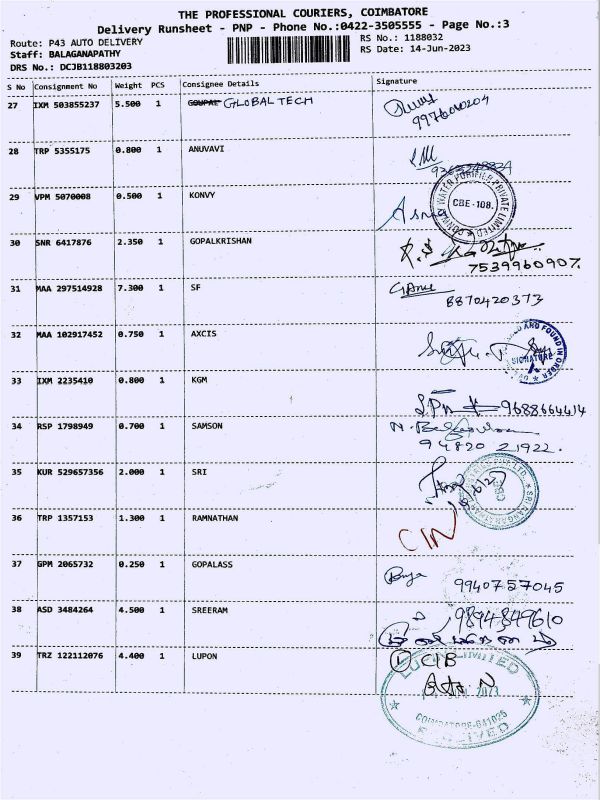 THE PROFESSIONAL COURIERS, COIMBATORE
Delivery Runsheet - PNP - Phone No.:0422-3505555 - Page No.:3
Route: P43 AUTO DELIVERY
RS No.: 1188032
Staff: BALAGANAPATHY
RS Date: 14-Jun-2023
DRS No.: DCJB118803203
S No Consignment No Weight PCS Consignee Details Signature
27 IXM 503855237 5.500 1 GOUPAL GLOBAL TECH
9976040204
28 TRP 5355175 0.800 1 ANUVAVI
29 VPM 5070008 0.500 1 KONVY
WATER PURIFIER PRIVATE LIMITED
CBE-108.
30 SNR 6417876 2.350 1 GOPALKRISHAN
7539960907.
31 MAA 297514928 7.300 1 SF
8870420373
32 MAA 102917452 0.750 1 AXCIS
AND FOUND IN ORDER
SIGNATURE
33 IXM 2235410 0.800 1 KGM
9688664414
34 RSP 1798949 0.700 1 SAMSON
94820 21922.
35 KUR 529657356 2.000 1 SRI
36 TRP 1357153 1.300 1 RAMNATHAN
37 GPM 2065732 0.250 1 GOPALASS
9940757045
38 ASD 3484264 4.500 1 SREERAM
9894849610
39 TRZ 122112076 4.400 1 LUPON
CIB
LIMITED
COIMBATORE-641025